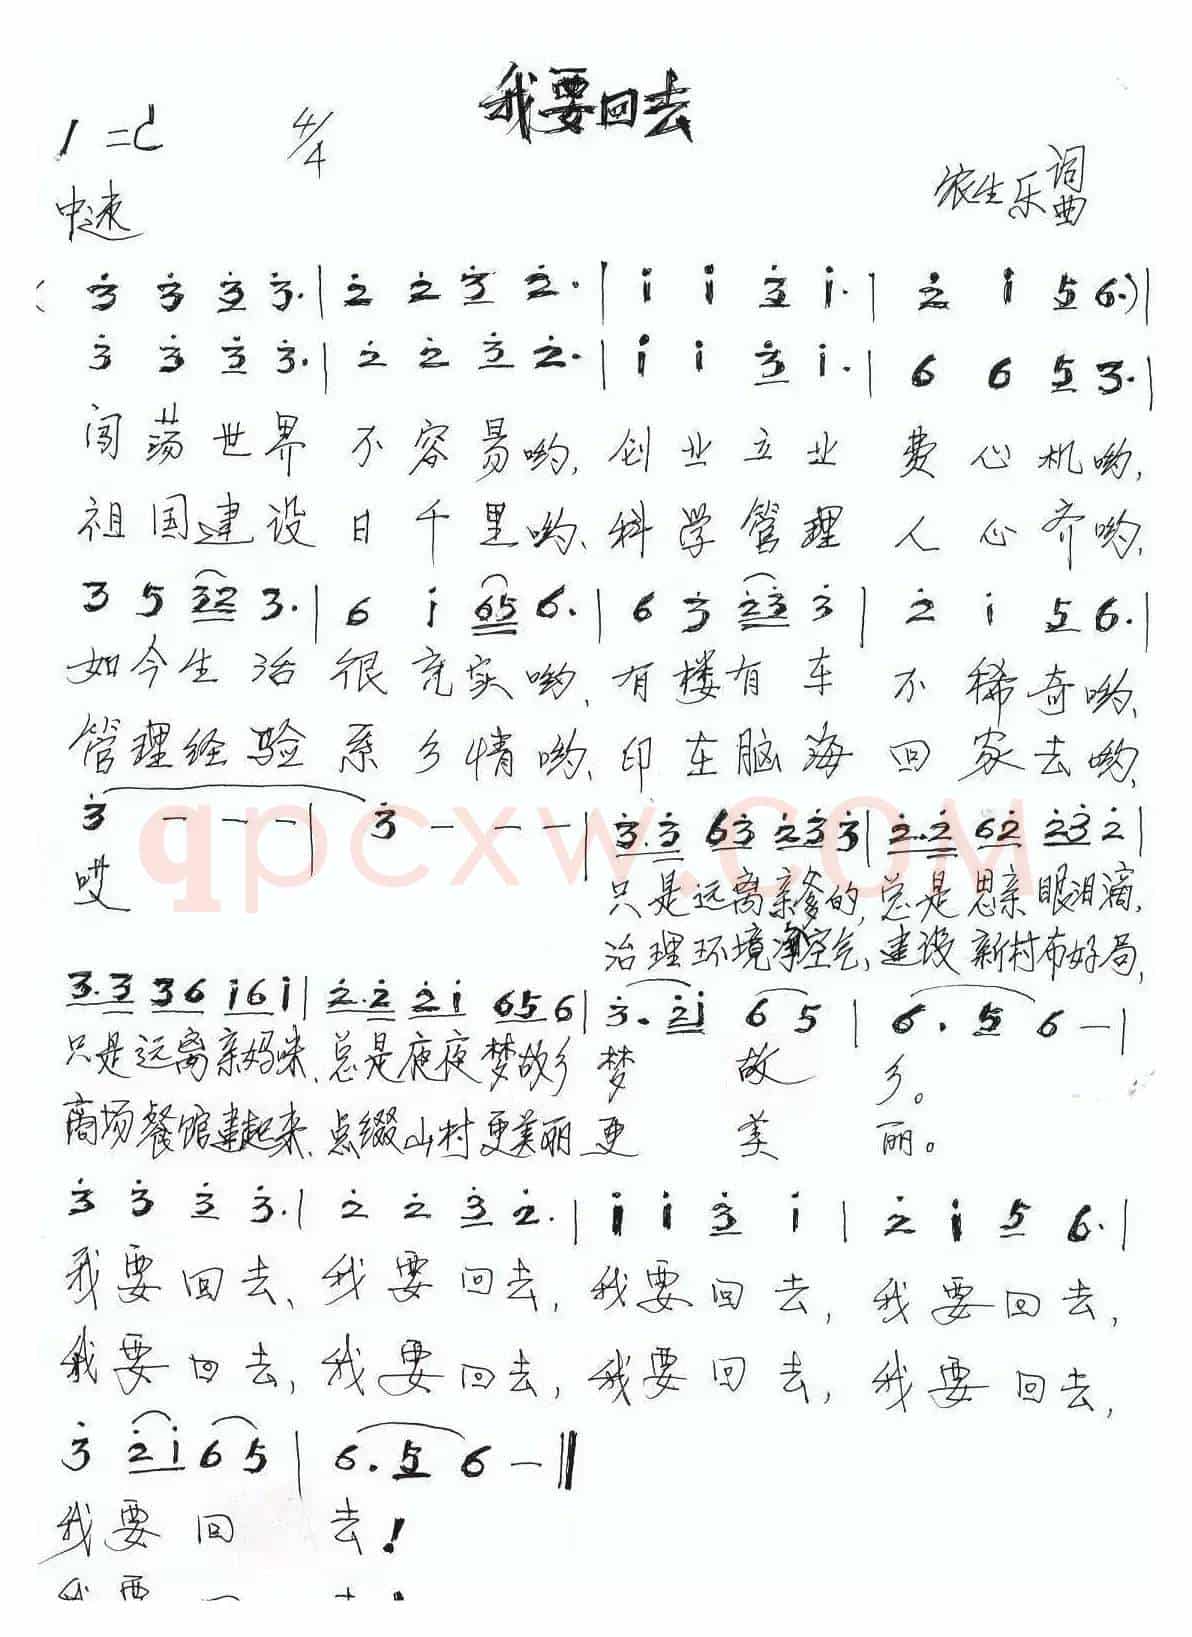 我要回去
1=C 4/4
农生乐词曲
中速
(3̇ 3̇ 3̇ 3̇. | 2̇ 2̇ 3̇ 2̇. | 1̇ 1̇ 3̇ 1̇. | 2̇ 1̇ 5 6.) |
3̇ 3̇ 3̇ 3̇. | 2̇ 2̇ 3̇ 2̇. | 1̇ 1̇ 3̇ 1̇. | 6 6 5 3. |
闯荡世界 不容易哟,创业立业 费心机哟,
祖国建设 日千里哟、科学管理 人心齐哟,
3 5 32 3. | 6 1̇ 65 6. | 6 3̇ 2̇3̇ 3̇ | 2̇ 1̇ 5 6. |
如今生活 很充实哟,有楼有车 不稀奇哟、
管理经验 系乡情哟、印在脑海 回家去哟,
3̇ - - - | 3̇ - - - | 3̇.3̇ 63̇ 2̇3̇3̇ | 2̇..2̇ 62̇ 2̇3̇2̇ |
哎 只是远离亲爹的,总是思亲眼泪滴,
治理环境净空气、建设新村布好局,
3.3 36 1̇61̇ | 2̇.2̇ 2̇1̇ 656 | 3̇. 2̇1̇ 6 5 | 6. 5 6 - |
只是远离亲妈咪、总是夜夜梦故乡 梦 故 乡。
商场餐馆建起来、点缀山村更美丽 更 美 丽。
3̇ 3̇ 3̇ 3̇. | 2̇ 2̇ 3̇ 2̇. | 1̇ 1̇ 3̇ 1̇ | 2̇ 1̇ 5 6. |
我要回去、我要回去,我要回去,我要回去,
我要回去,我要回去,我要回去,我要回去,
3̇ 2̇1̇ 6 5 | 6. 5 6 - ‖
我要回 去!
qpcxw.COM